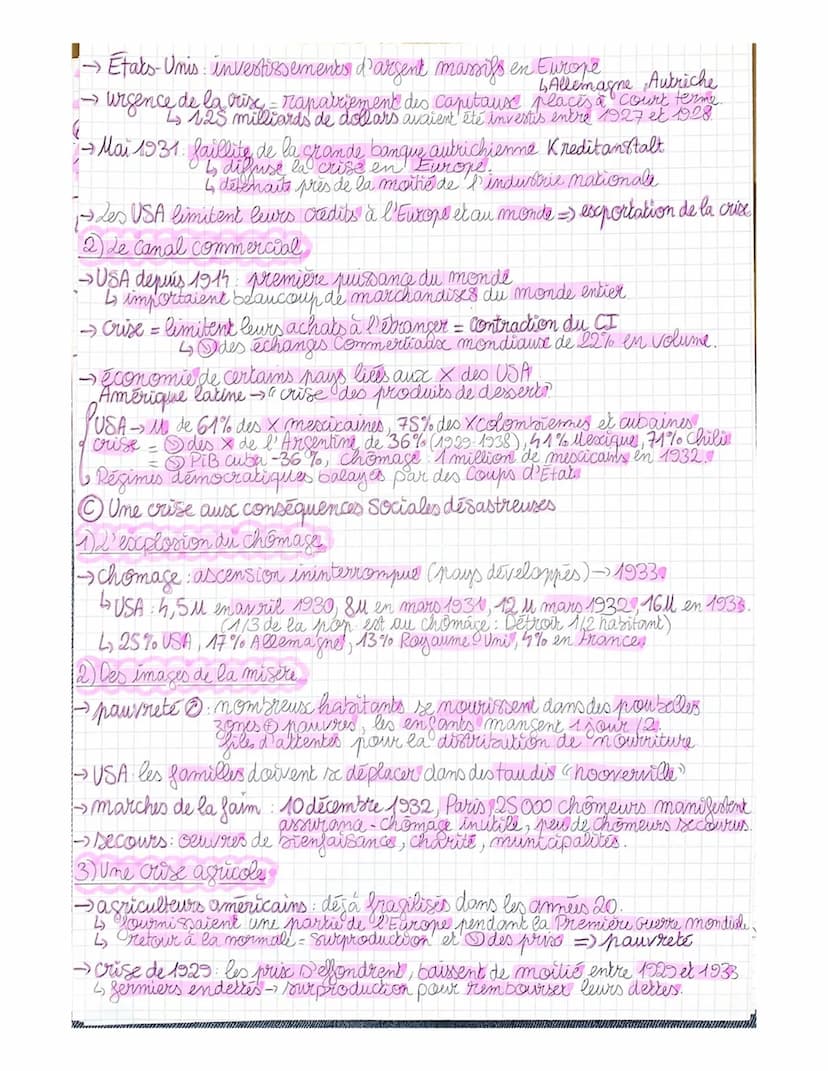 → États-Unis : investissements d'argent massifs en Europe
↳ Allemagne, Autriche
→ urgence de la crise = rapatriement des capitaux placés à court terme.
↳ 125 milliards de dollars avaient été investis entre 1927 et 1928
→ Mai 1931 : faillite de la grande banque autrichienne Kreditanstalt
↳ diffuse la crise en Europe.
↳ détenait près de la moitié de l'industrie nationale
→ Les USA limitent leurs crédits à l'Europe et au monde => exportation de la crise
2) Le canal commercial
→ USA depuis 1914 : première puissance du monde
↳ importaient beaucoup de marchandises du monde entier
→ Crise = limitent leurs achats à l'étranger = contraction du CI
↳ ↘ des échanges commerciaux mondiaux de 22% en volume.
→ économie de certains pays liées aux X des USA
Amérique latine → "crise des produits de dessert"
USA → M de 61% des X mexicaines, 75% des X colombiennes et cubaines
crise = ↘ des X de l'Argentine, de 36% (1929-1938), 41% Mexique, 71% Chili
= ↘ PiB cuba -36%, chômage : 1 million de mexicains en 1932.
↳ Régimes démocratiques balayés par des Coups d'État.
Ⓒ Une crise aux conséquences Sociales désastreuses
1) L'explosion du chômage
→ chômage : ascension ininterrompue (pays développés) → 1933.
↳ USA : 4,5M en avril 1930, 8M en mars 1931, 12M mars 1932, 16M en 1933.
(1/3 de la pop. est au chômage : Détroit 1/2 habitant)
↳ 25% USA, 17% Allemagne, 13% Royaume-Uni, 4% en France.
2) Des images de la misère
→ pauvreté ↗ : nombreux habitants se nourissent dans des poubelles
zones ⊕ pauvres, les enfants mangent 1 jour/2
files d'attentes pour la distribution de nourriture
→ USA : les familles doivent se déplacer dans des taudis "hooverville"
→ marches de la faim : 10 décembre 1932, Paris, 25 000 chômeurs manifestent
assurance-chômage inutile, peu de chômeurs secourus.
→ Secours : oeuvres de bienfaisance, charité, municipalités.
3) Une crise agricole
→ agriculteurs américains : déjà fragilisés dans les années 20.
↳ fournissaient une partie de l'Europe pendant la Première Guerre mondiale
↳ retour à la normale = surproduction et ↘ des prix => pauvreté
→ Crise de 1929 : les prix s'effondrent, baissent de moitié entre 1929 et 1933
↳ fermiers endettés → surproduction pour rembourser leurs dettes.